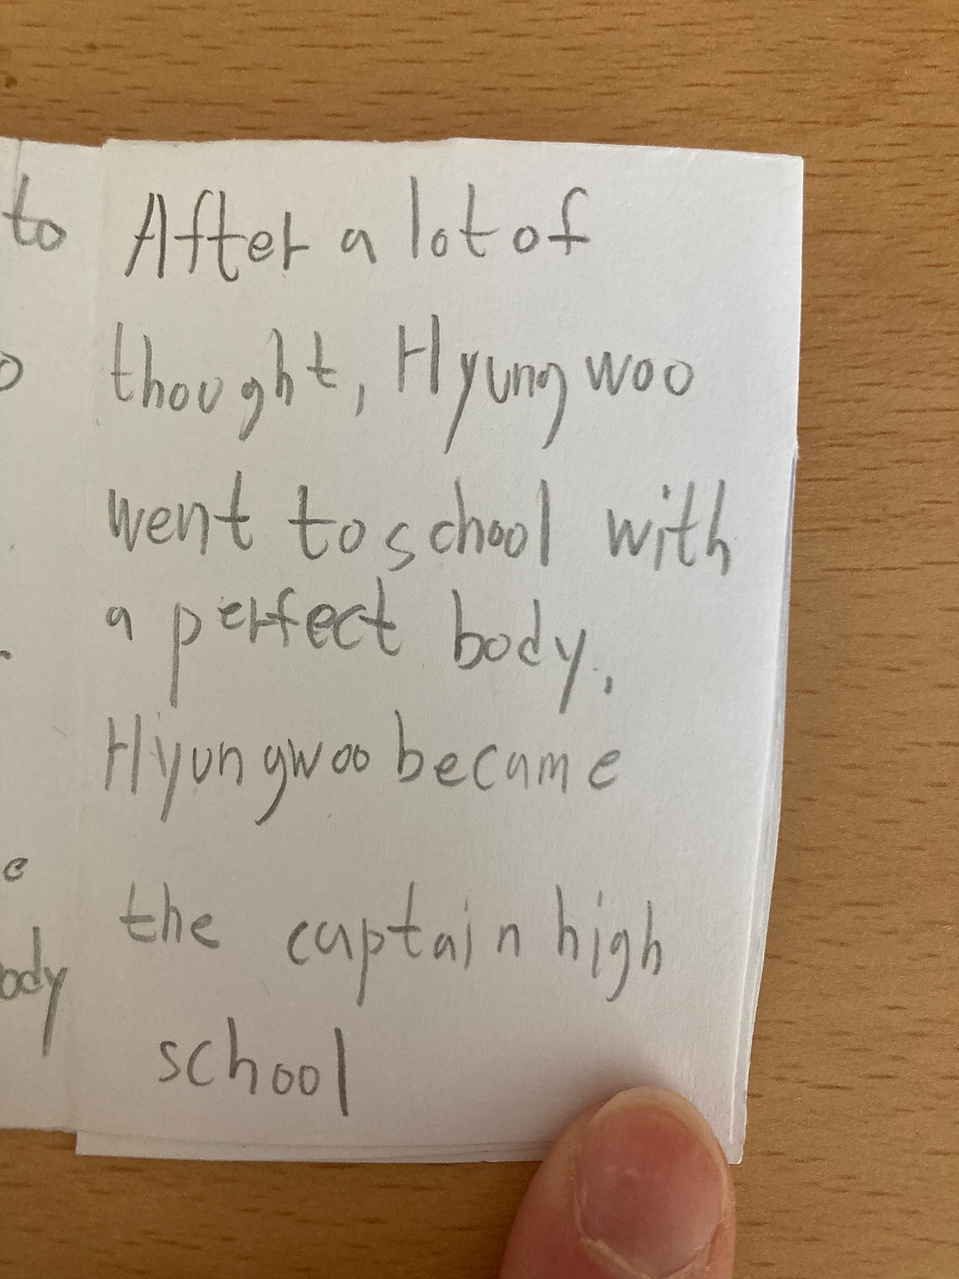 to
After a lot of
thought, Hyungwoo
went to school with
a perfect body.
Hyungwoo became
the captain high
school